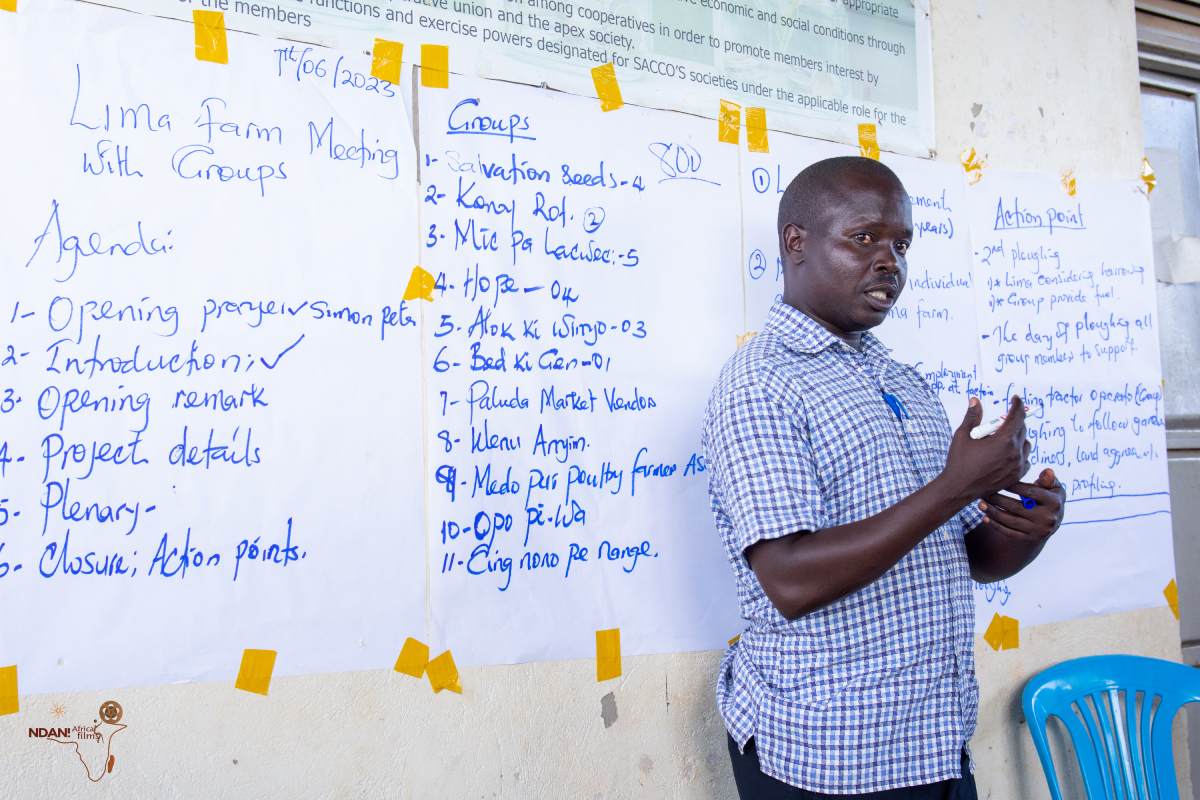 among cooperatives in order to promote members interest by
economic and social conditions through
appropriate
of the members
functions and exercise powers designated for SACCO'S societies under the applicable role for the
union and the apex society.
7th/06/2023
Lima farm Meeting
with Groups
Agenda:
1- Opening prayer ✓ Simon peter
2- Introduction; ✓
3- Opening remark
4- Project details
5- Plenary-
6- Closure; Action points.
Groups
800
1- Salvation Seeds-4
2- Konoy Rot. ②
3- Mic pa Lacwec:-5
4- Hope - 04
5- Alok ki winyo-03
6- Bed Ki Gen-01
7- Paluda Market Vendos
8- Wenu Anyim.
9- Medo pur poultry farmer As
10- Opo pi-wa
11- Cing nono pe nange.
①
ement
years)
②
individual
farm.
Employment
Action point
- 2nd ploughing
i)* Lima considering harrowing
ii)* Group provide fuel.
- The day of ploughing all
group members to support
tractor operator (Group)
to follow
land
profiling.
NDAN! Africa
films